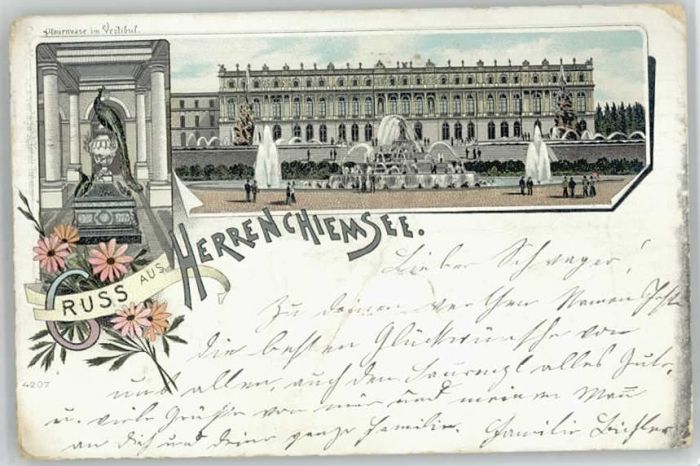 Pfauenvase im Vestibul.
GRUSS AUS
HERRENCHIEMSEE.
4207
Lieber Schwager!
Zu deinem werthen Namensfest
die besten Glückwünsche von
uns allen, auch den alles Gute.
u. viele Grüße von mir und meinem Mann
an dich und deine ganze Familie. Familie Bichler